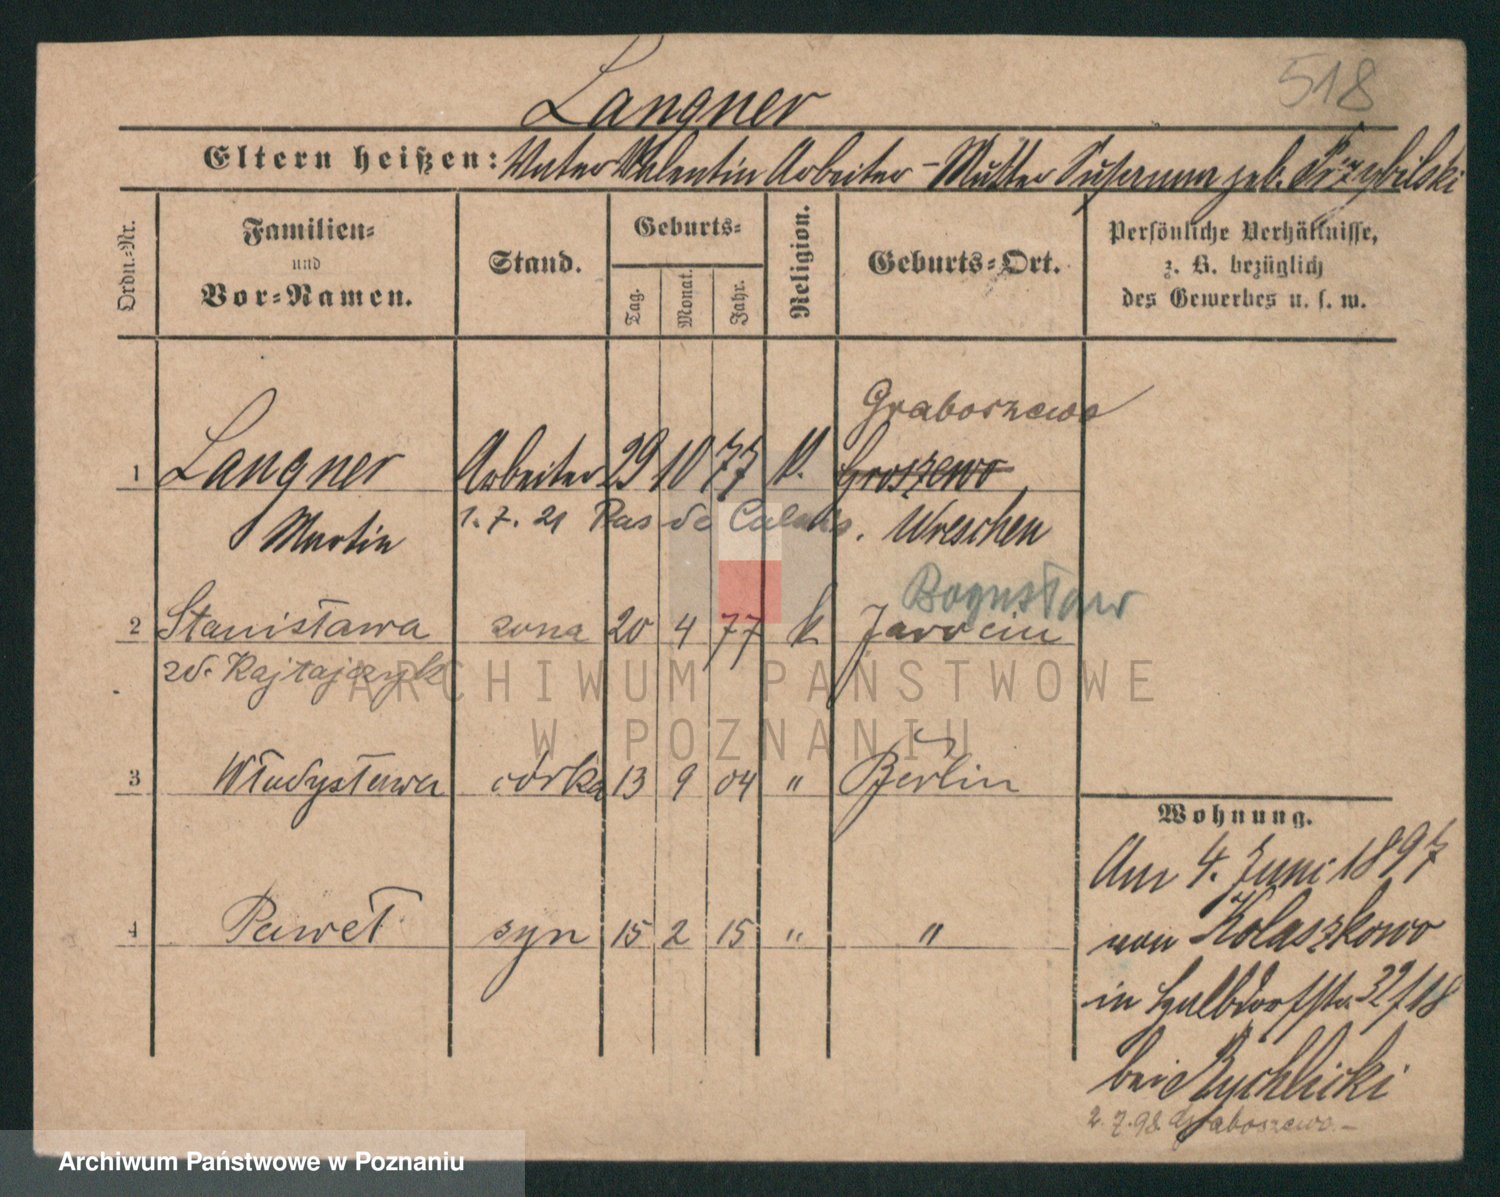 518
Langner
Eltern heißen: Vater Valentin Arbeiter - Mutter Susanna geb. Przybilski
Ordn.-Nr.
Familien-
und
Vor-Namen.
Stand.
Geburts-
Tag.
Monat.
Jahr.
Religion.
Geburts-Ort.
Persönliche Verhältnisse,
z. B. bezüglich
des Gewerbes u. s. w.
Graboszewo
1 Langner Arbeiter 29 10 77 k. Groszewo
Martin 1.7.21 Pas de Calais. Wreschen
Bogusław
2 Stanisława żona 20 4 77 k. Jarocin
zd. Kajtajczyk
3 Władysława córka 13 9 04 " Berlin
4 Paweł syn 15 2 15 " "
Wohnung.
Am 4. Juni 1897
von Kolaszkowo
in Halbdorfstr. 32/18
bei Rychlicki
2.7.98 Graboszewo.-
ARCHIWUM PAŃSTWOWE
W POZNANIU
Archiwum Państwowe w Poznaniu